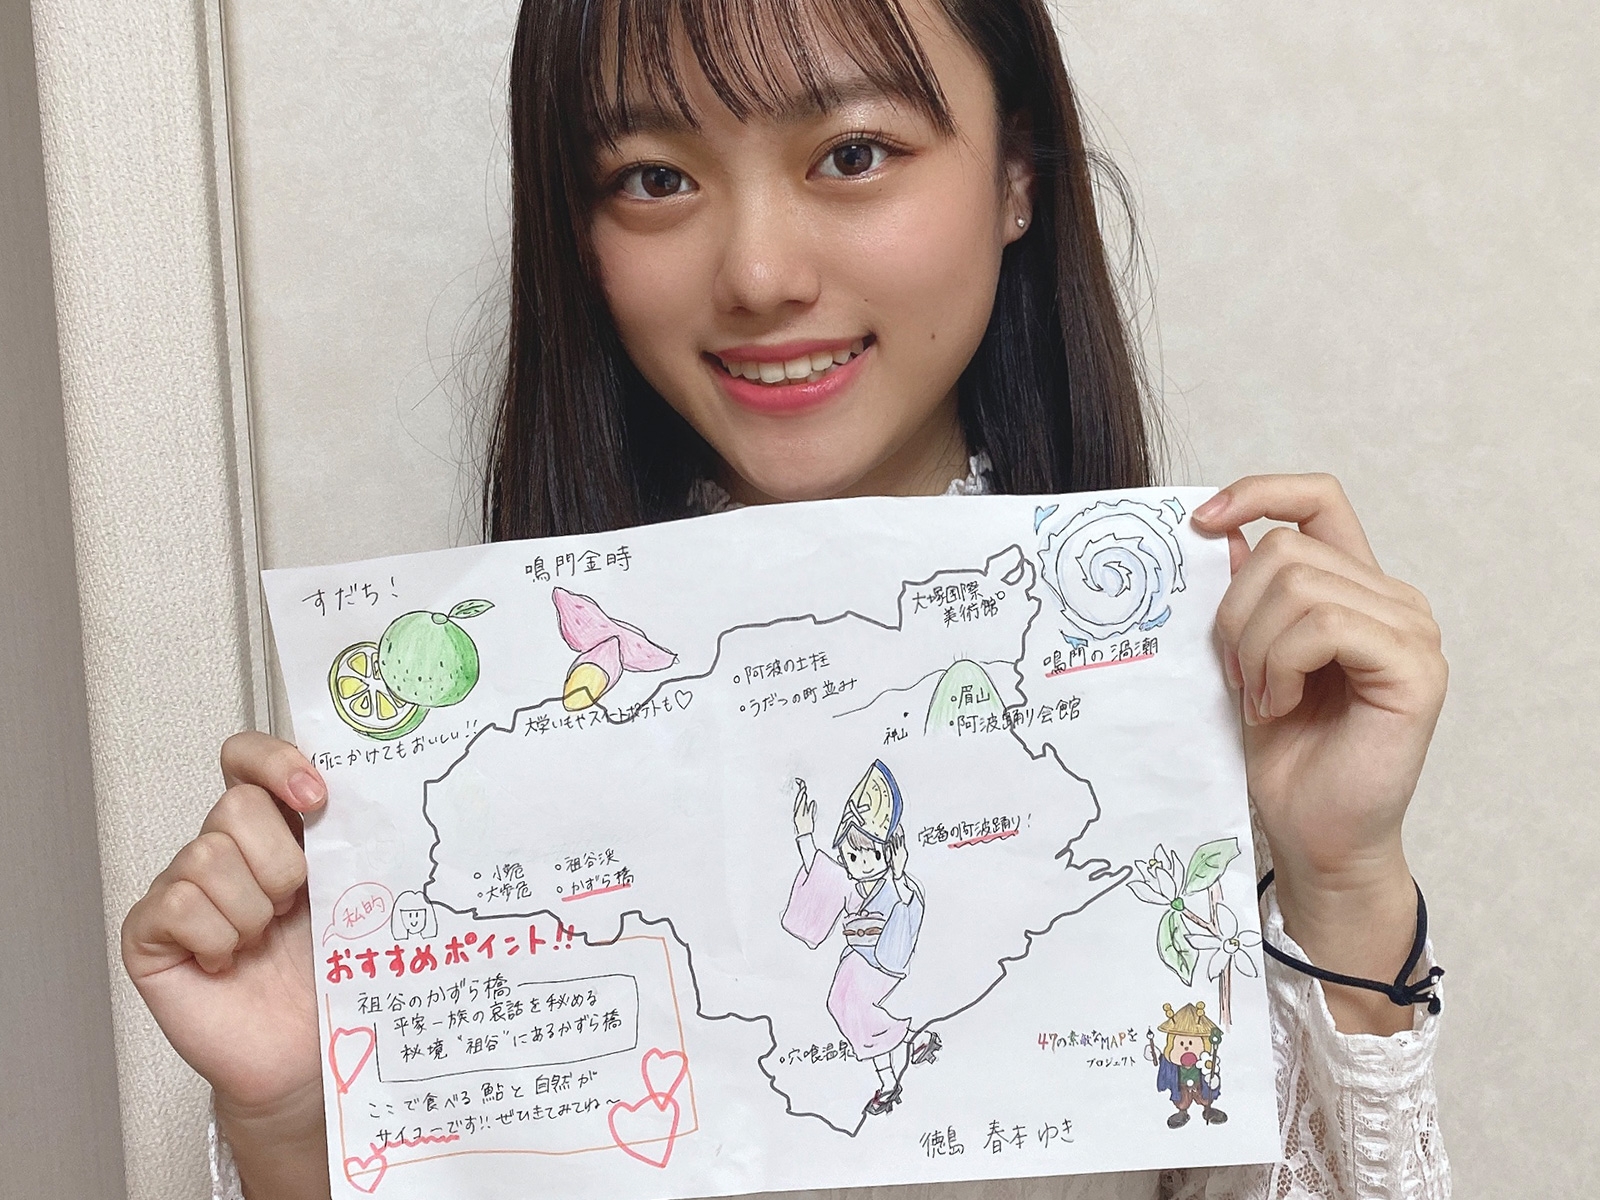 すだち!
何にかけてもおいしい!!
鳴門金時
大学いもやスイートポテトも♡
大塚国際
美術館
鳴門の渦潮
阿波の土柱
うだつの町並み
眉山
阿波踊り会館
神山
定番の阿波踊り!
小歩危
大歩危
祖谷渓
かずら橋
私的
おすすめポイント!!
祖谷のかずら橋
平家一族の哀話を秘める
秘境"祖谷"にあるかずら橋
ここで食べる鮎と自然が
サイコーです!!ぜひきてみてね〜
穴喰温泉
47の素敵なMAPを
プロジェクト
徳島 春本ゆき